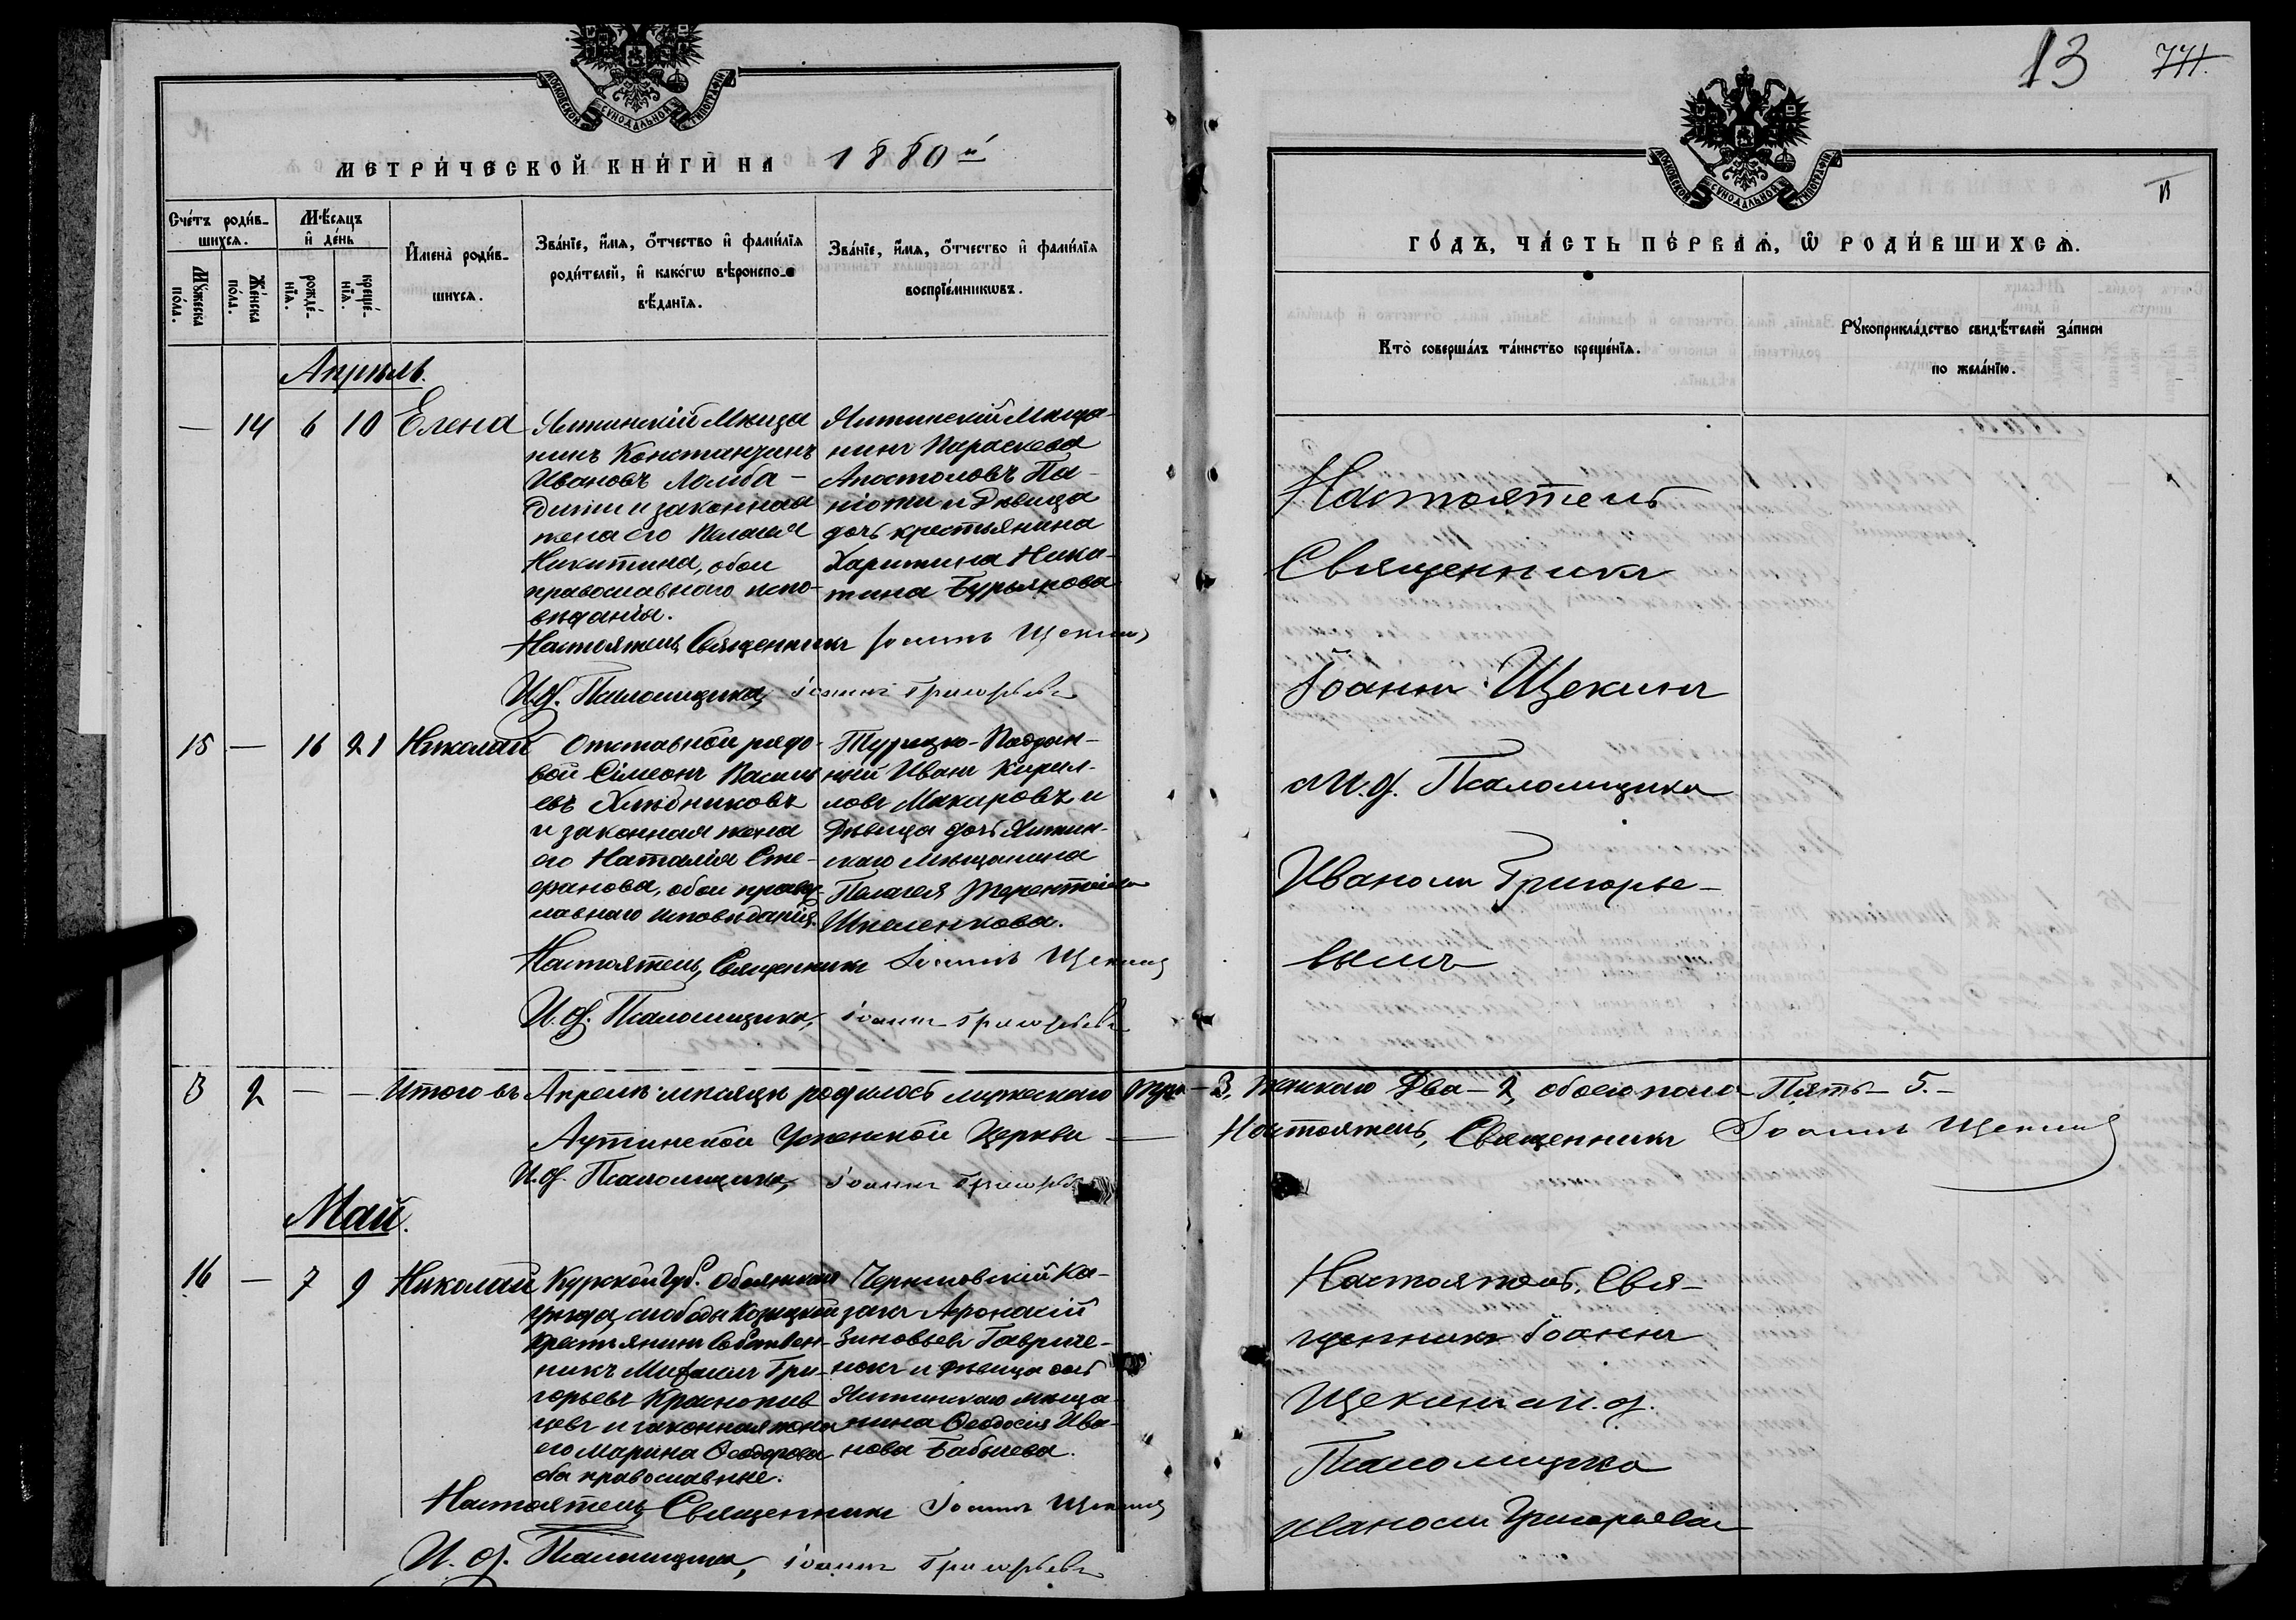 МОСКОВСКОЙ СѴНОДАЛЬНОЙ ТИПОГРАФІИ
МЕТРИ́ЧЕСКОЙ КНИ́ГИ НА 1880й
Сче́тъ роди́в-
шихсѧ.
Мѣ́сѧцъ
и҆ де́нь
Мꙋ́жеска
по́ла.
Же́нска
по́ла.
рожде́-
нїѧ.
креще́-
нїѧ.
И҆мена̀ роди́в-
шихсѧ.
Зва́нїе, и҆́мѧ, ѻ҆́тчество и҆ фамі́лїѧ
роди́телей, и҆ како́гѡ вѣроиспо-
вѣ́данїѧ.
Зва́нїе, и҆́мѧ, ѻ҆́тчество и҆ фамі́лїѧ
воспрїе́мникѡвъ.
Апрѣль.
— 14 6 10 Елена
Ялтинскій Мѣща
нинъ Константинъ
Ивановъ Ломба-
дини и законная
жена его Пелагея
Никитина, обои
православнаго испо-
вѣданія.
Ялтинскій Мѣща-
нинъ Параскева
Апостоловъ Па-
ніоти и Дѣвица
дочь крестьянина
Харитина Ники-
тина Бурьянова
Настоятель Священникъ Іоаннъ Щекинъ
И.д. Псаломщика, Іоаннъ Григорьевъ
15 — 16 21 Николай
Отставной рядо-
вой Симеонъ Василь
евъ Хлѣбниковъ
и законная жена
его Наталія Сте-
фанова, обои право-
славнаго исповѣданія.
Турецко-Поддан-
ный Иванъ Кирил-
ловъ Макаровъ и
Дѣвица дочь Ялтин-
скаго мѣщанина
Пелагея Терентьева
Шкаленкова.
Настоятель, Священникъ Іоаннъ Щекинъ
И.д. Псаломщика, Іоаннъ Григорьевъ
3 2 — — Итого въ Апрелѣ мѣсяцѣ родилось мужескаго три
Аутинской Успенской Церкви —
И.д. Псаломщика, Іоаннъ Григорьевъ
Май.
16 — 7 9 Николай
Курской Губ. Обоянскаго
уѣзда, слободы
крестьянинъ собствен-
никъ Михаилъ Гри-
горьевъ Краснопив
цевъ и законная жена
его Марина Ѳеодорова
оба православные.
Черниговскій Ка-
закъ Афонасій
Зиновьевъ Гавриле-
нокъ и дѣвица дочь
Ялтинскаго мѣща-
нина Ѳеодосія Ива-
нова Бабычева.
Настоятель, Священникъ Іоаннъ Щекинъ
И.д. Псаломщика, Іоаннъ Григорьевъ
13 771.
МОСКОВСКОЙ СѴНОДАЛЬНОЙ ТИПОГРАФІИ
ГО́ДЪ, ЧА́СТЬ ПЕ́РВАѦ, Ѽ РОДИ́ВШИХСѦ.
Кто̀ соверша́лъ та́инство креще́нїѧ.
Рꙋкоприкла́дство свидѣ́телей за́писи
по жела́нїю.
Настоятель
Священникъ
Іоаннъ Щекинъ
съ И.д. Псаломщика
Иваномъ Григорье-
вымъ
— 3, женскаго Два — 2, обоего пола Пять — 5. —
Настоятель, Священникъ Іоаннъ Щекинъ
Настоятель, Свя-
щенникъ Іоаннъ
Щекинъ съ И.д.
Псаломщика
Иваномъ Григорьевымъ